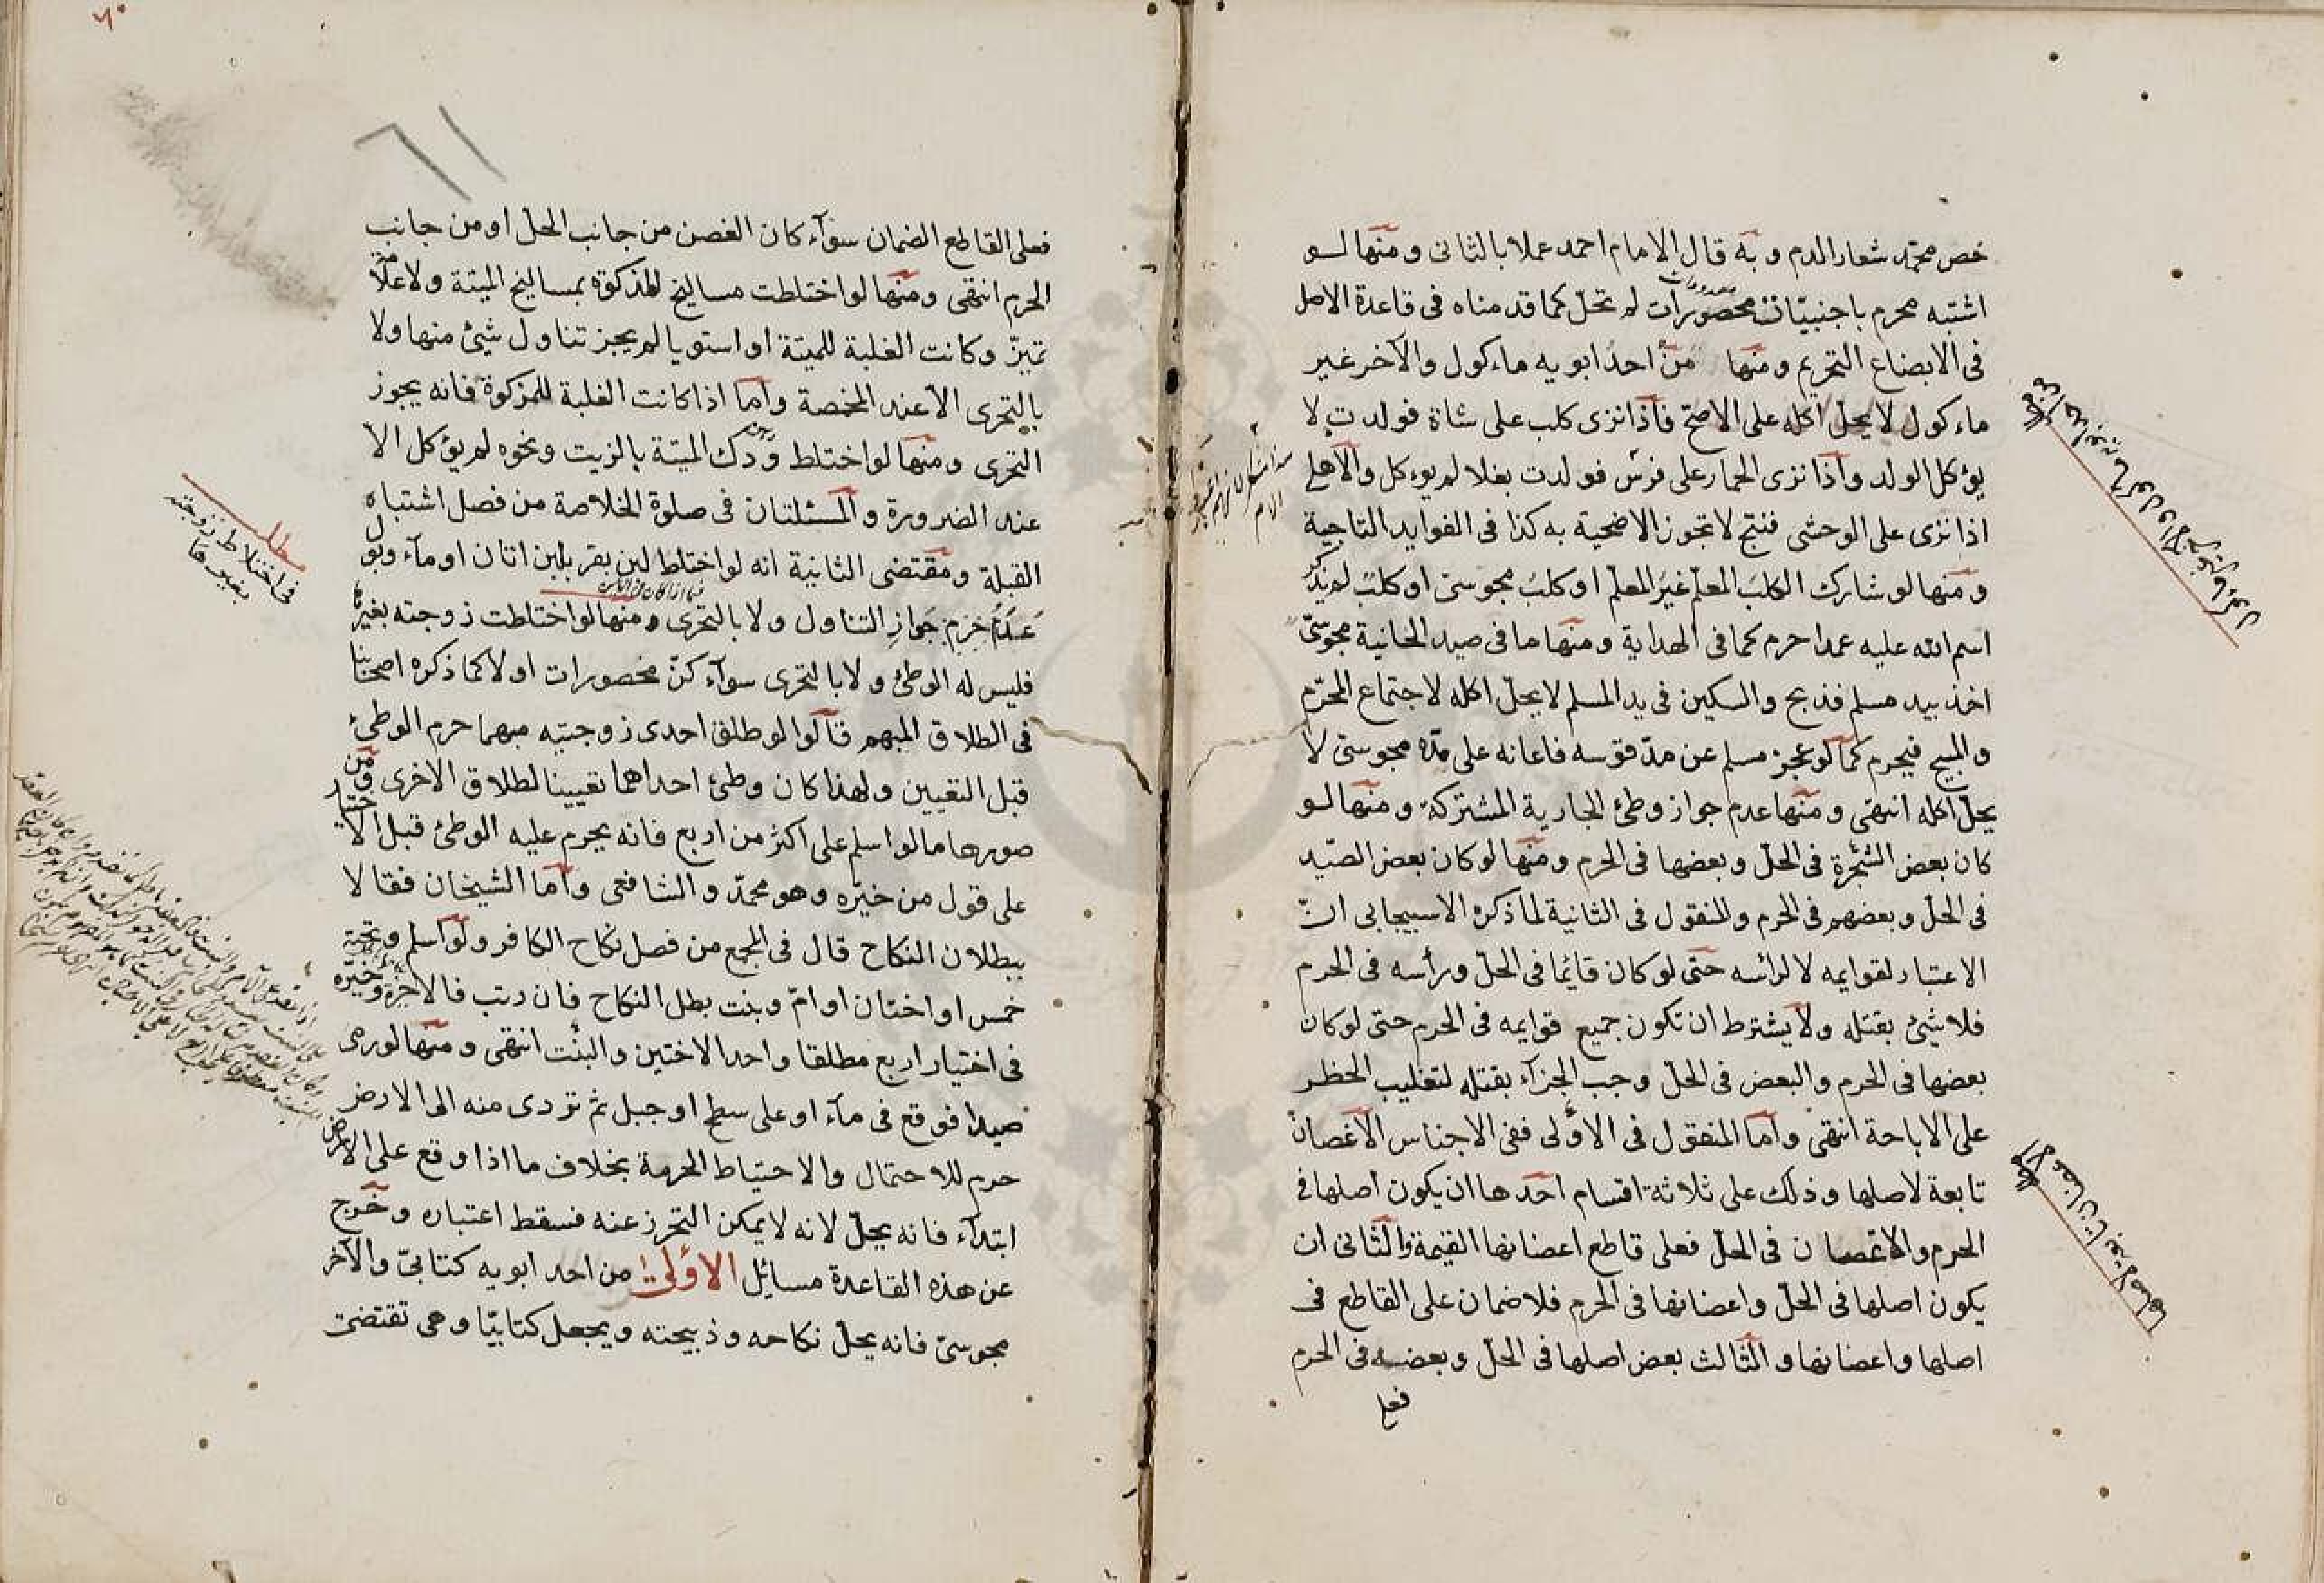 خص محمّد شعار الدم وبه قال الامام احمد عملا بالثانى ومنها لو
اشتبه محرم باجنبيّات محصورات لم تحلّ كما قدمناه فى قاعدة الاصل
معدودات
فى الابضاع التحريم ومنها من احد ابويه ماءكول والآخر غير
ماءكول لا يحلّ اكله على الاصحّ فاذا نزى كلب على شاة فولدت لا
يؤكل الولد واذا نزى الحمار على فرس فولدت بغلا لم يوءكل والاهلى
اذا نزى على الوحشى فنتج لا تجوز الاضحية به كذا فى الفوايد التاجية
ومنها لو شارك الكلب المعلّم غير المعلّم او كلبُ مجوسىّ او كلبٌ لم يذكر
اسم الله عليه عمدا حرم كما فى الهداية ومنها ما فى صيد الخانية مجوسىّ
اخذ بيد مسلم فذبح والسكين فى يد المسلم لا يحلّ اكله لاجتماع المحرّم
والمبيح فيحرم كما لو عجز مسلم عن مدّ قوسه فاعانه على مدّه مجوسىّ لا
يحلّ اكله انتهى ومنها عدم جواز وطئ الجارية المشتركة ومنها لو
كان بعض الشجرة فى الحلّ وبعضها فى الحرم ومنها لو كان بعض الصّيد
فى الحلّ وبعضهم فى الحرم والمنقول فى الثانية لما ذكره الاسبيجابى انّ
الاعتبار لقوايمه لا لرائسه حتى لو كان قايما فى الحلّ ورأسه فى الحرم
فلا شيئ بقتله ولا يشترط ان تكون جميع قوايمه فى الحرم حتى لو كان
بعضها فى الحرم والبعض فى الحلّ وجب الجزآء بقتله لتغليب الحظر
على الاباحة انتهى واما المنقول فى الاولى ففى الاجناس الاغصان
تابعة لاصلها وذلك على ثلاثة اقسام احدها ان يكون اصلها فى
الحرم والاغصان فى الحلّ فعلى قاطع اعضانها القيمة والثانى ان
يكون اصلها فى الحلّ واعضانها فى الحرم فلا ضمان على القاطع فى
اصلها واعضانها والثالث بعض اصلها فى الحلّ وبعضه فى الحرم
فعلى
الاغصان تابعة لاصلها
فعلى القاطع الضمان سوآء كان الغصن من جانب الحلّ او من جانب
الحرم انتهى ومنها لو اختلطت مساليخ المذكوة بمساليخ الميتة ولا علامة
تميزّ وكانت الغلبة للميتة او استويا لم يجز تناول شيئ منها ولا
بالتحرى الا عند المخمصة واما اذا كانت الغلبة للمزكوة فانه يجوز
التحرى ومنها لو اختلط ودك الميتة بالزيت ونحوه لم يؤكل الا
عند الضرورة والمسئلتان فى صلوة الخلاصة من فصل اشتباه
القبلة ومقتضى الثانية انه لو اختلط لبن بقر بلبن اتان او مآء وبول
عدم جواز التناول ولا بالتحرى ومنها لو اختلطت زوجته بغيرها
فليس له الوطئ ولا بالتحرى سوآء كنّ محصورات او لا كما ذكره اصحبنا
فى الطلاق المبهم قالوا لو طلق احدى زوجتيه مبهما حرم الوطئ
قبل التعيين ولهذا كان وطئ احداهما تعيينا لطلاق الاخرى ومن
صورها ما لو اسلم على اكثر من اربع فانه يحرم عليه الوطئ قبل الاختيار
على قول من خيّره وهو محمدّ والشافعى واما الشيخان فقالا
ببطلان النكاح قال فى المجمع من فصل نكاح الكافر ولو اسلم وتحته
خمس او اختان او امّ وبنت بطل النكاح فان رتب فالاخيرة وخيّره
فى اختيار اربع مطلقا واحد الاختين والبنت انتهى ومنها لو رمى
صيدا فوقع فى مآء او على سطح او جبل ثم تردى منه الى الارض
حرم للاحتمال والاحتياط الحرمة بخلاف ما اذا وقع على الارض
ابتدآء فانه يحلّ لانه لا يمكن التحرز عنه فسقط اعتباره وخرج
عن هذه القاعدة مسائل الاولى من احد ابويه كتابىّ والآخر
مجوسىّ فانه يحلّ نكاحه وذبيحته ويجعل كتابيّا وهى تقتضى
مطلب
فى اختلاط زوجته
بغيرها
٦١
٦٠